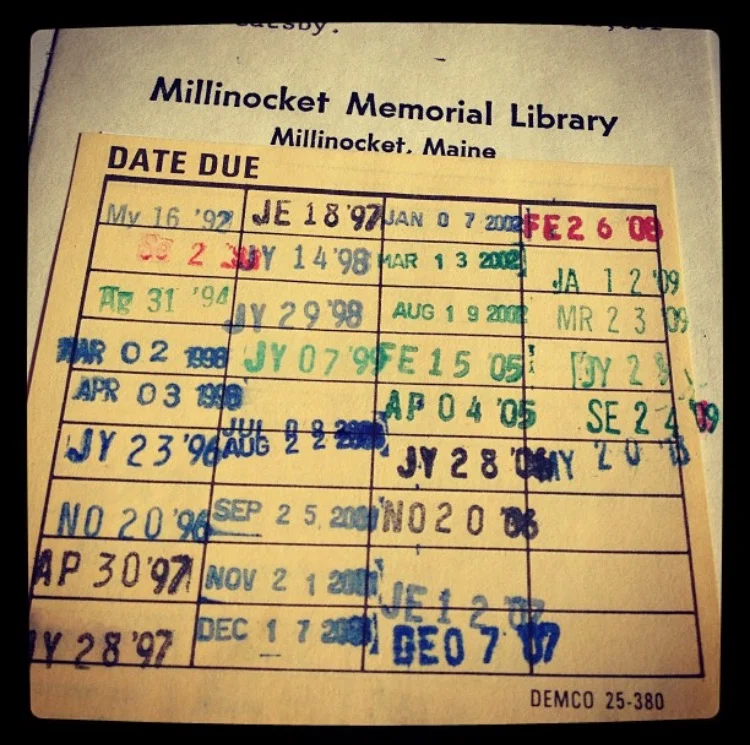 Millinocket Memorial Library
Millinocket, Maine
DATE DUE
My 16 '92 JE 18 '97 JAN 07 2002 FE 26 '08
2 JY 14 '98 MAR 13 2002 JA 12 '09
Ag 31 '94 JY 29 '98 AUG 19 2002 MR 23 '09
MAR 02 1996 JY 07 '99 FE 15 '05 JY 2
APR 03 1996 JUL 08 AP 04 '05 SE 24 '09
JY 23 '96 AUG 22 JY 28 '06 MY 20
NO 20 '96 SEP 25 2001 NO 20 '06
AP 30 '97 NOV 21 2001 JE 12 '07
28 '97 DEC 17 2001 DE 07 '07
DEMCO 25-380